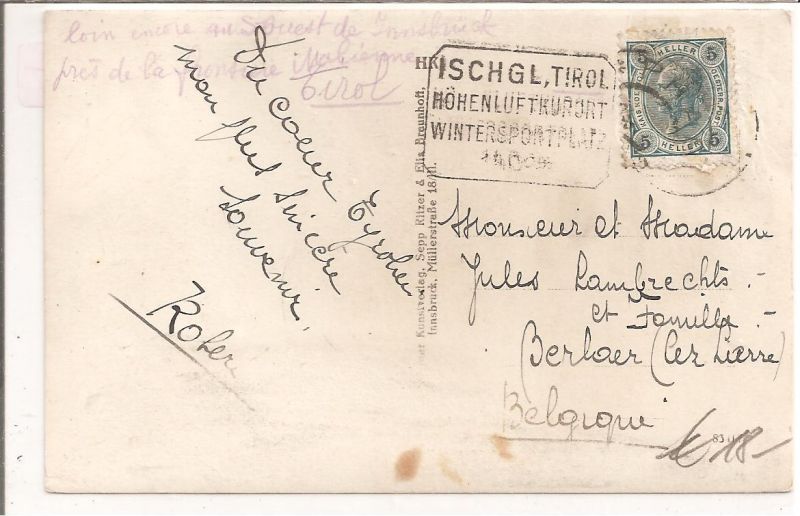 loin encore au Sud Ouest de Innsbrück
près de la frontière Italienne
Tirol
Du coeur Tyrolien
mon plus sincère
souvenir,
Robert
Kunstverlag, Sepp Ritzer & Ella Braunhoff,
Innsbruck, Müllerstraße 18/II.
ISCHGL, TIROL
HÖHENLUFTKURORT
WINTERSPORTPLATZ
HELLER
5 5
KAIS. KÖNIGL. OESTERR. POST
5 HELLER 5
Monsieur et Madame
Jules Lambrechts.-
et Famille.-
Berlaer (lez Lierre)
Belgique
83
18-